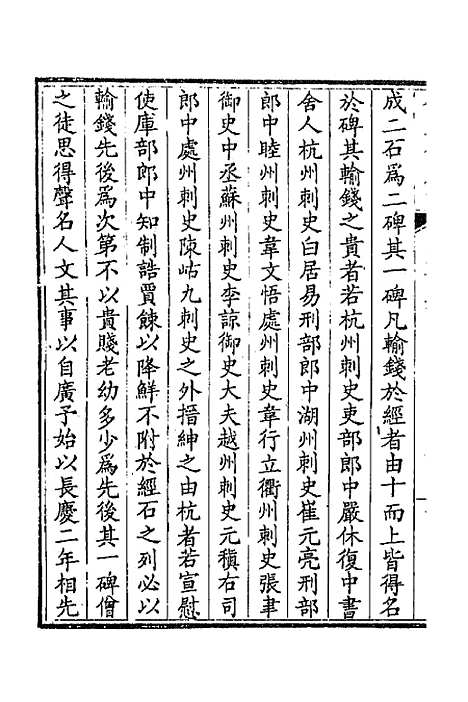 成二石爲二碑其一碑凡輸錢於經者由十而上皆得名
於碑其輸錢之貴者若杭州刺史吏部郎中嚴休復中書
舍人杭州刺史白居易刑部郎中湖州刺史崔元亮刑部
郎中睦州刺史韋文悟處州刺史韋行立衢州刺史張聿
御史中丞蘇州刺史李諒御史大夫越州刺史元稹右司
郎中處州刺史陳岵九刺史之外搢紳之由杭者若宣慰
使庫部郎中知制誥賈餗以降鮮不附於經石之列必以
輸錢先後爲次第不以貴賤老幼多少爲先後其一碑僧
之徒思得聲名人文其事以自廣予始以長慶二年相先